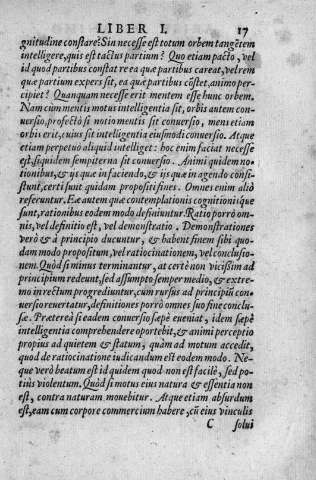 LIBER I. 17
gnitudine constare? Sin necesse est totum orbem tangētem
intelligere, quis est tactus partium? Quo etiam pacto, vel
id quod partibus constat re ea quæ partibus careat, vel rem
quæ partium expers sit, ea quæ partibus cōstet, animo per-
cipiet? Quanquam necesse erit mentem esse hunc orbem.
Nam cum mentis motus intelligentia sit, orbis autem con-
uersio, profectò si notio mentis sit conuersio, mens etiam
orbis erit, cuius sit intelligentia eiusmodi conuersio. Atque
etiam perpetuò aliquid intelliget: hoc enim faciat necesse
est, siquidem sempiterna sit conuersio. Animi quidem no-
tionibus, & ijs quæ in faciendo, & ijs quæ in agendo consi-
stunt, certi sunt quidam propositi fines. Omnes enim aliò
referuntur. Eæ autem quæ contemplationis cognitionisque
sunt, rationibus eodem modo definiuntur. Ratio porrò om-
nis, vel definitio est, vel demonstratio. Demonstrationes
verò & à principio ducuntur, & habent finem sibi quo-
dam modo propositum, vel ratiocinationem, vel conclusio-
nem. Quòd si minus terminantur, at certè non vicissim ad
principium redeunt, sed assumpto semper medio, & extre-
mo in rectum progrediuntur, cum rursus ad principiū con-
uersio reuertatur, definitiones porrò omnes suo fine conclu-
sæ. Prætereà si eadem conuersio sæpè eueniat, idem sæpè
intelligentia comprehendere oportebit, & animi perceptio
propius ad quietem & statum, quàm ad motum accedit,
quod de ratiocinatione iudicandum est eodem modo. Ne-
que verò beatum est id quidem quod non est facilè, sed po-
tiùs violentum. Quòd si motus eius natura & essentia non
est, contra naturam mouebitur. Atque etiam absurdum
est, eam cum corpore commercium habere, cū eius vinculis
C solui